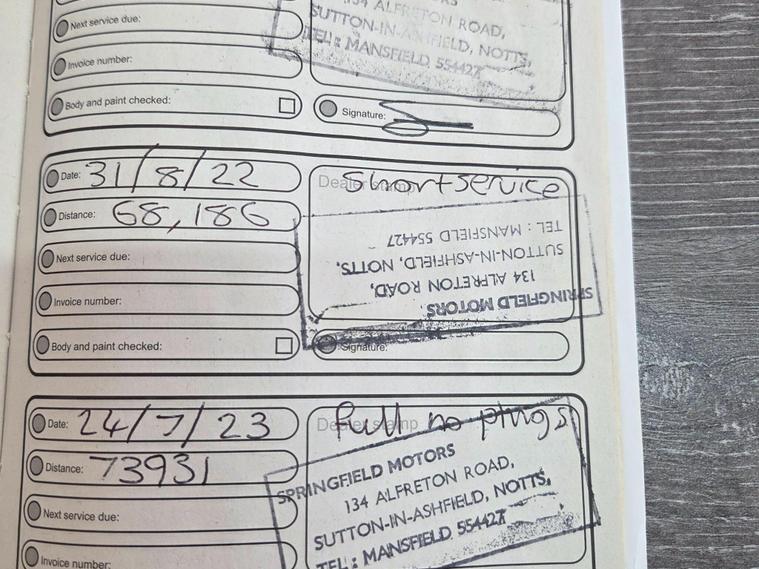 134 ALFRETON ROAD,
Next service due:
SUTTON-IN-ASHFIELD, NOTTS,
TEL: MANSFIELD 554427
Invoice number:
Body and paint checked:
Signature:
Date: 31/8/22
Dealer stamp
Short service
Distance: 68,186
TEL: MANSFIELD 554427
SUTTON-IN-ASHFIELD, NOTTS,
134 ALFRETON ROAD,
SPRINGFIELD MOTORS
Next service due:
Invoice number:
Body and paint checked:
Signature:
Date: 24/7/23
Dealer stamp
full no plugs
Distance: 73931
SPRINGFIELD MOTORS
134 ALFRETON ROAD,
SUTTON-IN-ASHFIELD, NOTTS,
TEL: MANSFIELD 554427
Next service due:
Invoice number: